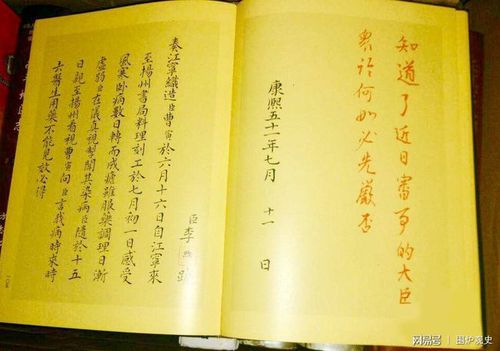 知道了近日審事的大臣
眾論何如必先嚴否
康熙五十一年七月 十一 日
臣李煦跪
奏江寧織造臣曹寅於六月十六日自江寧來
至揚州書局料理刻工於七月初一日感受
風寒臥病數日轉而成瘧雖服藥調理日漸
虛弱臣在儀真視掣聞其染病臣隨於十五
日親至揚州看視曹寅向臣言我病時來時
去醫生用藥不能見效必得
网易号 | 围炉观史